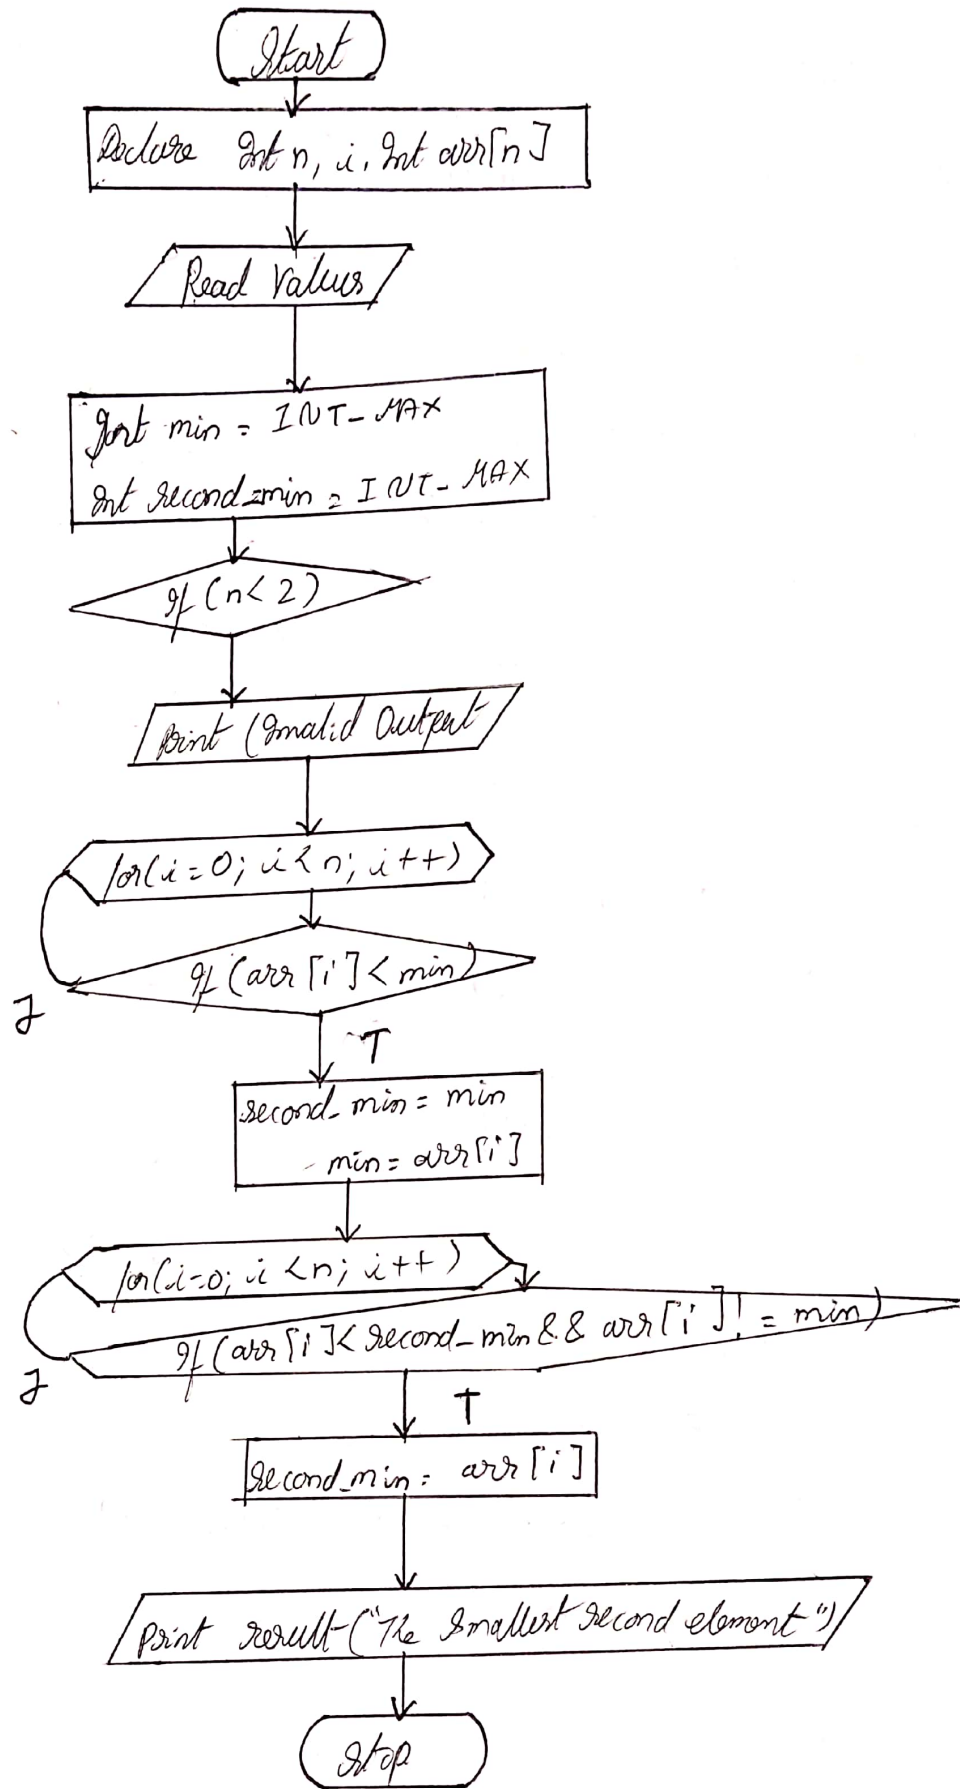 Start
Declare Int n, i, Int arr[n]
Read Values
Int min = INT_MAX
Int second_min = INT_MAX
If (n<2)
Print (Invalid Output
for(i=0; i<n; i++)
If (arr[i] < min)
F
T
second_min = min
min = arr[i]
for(i=0; i<n; i++)
If (arr[i]< second_min && arr[i] != min)
F
T
second_min = arr[i]
Print result ("The smallest second element")
Stop